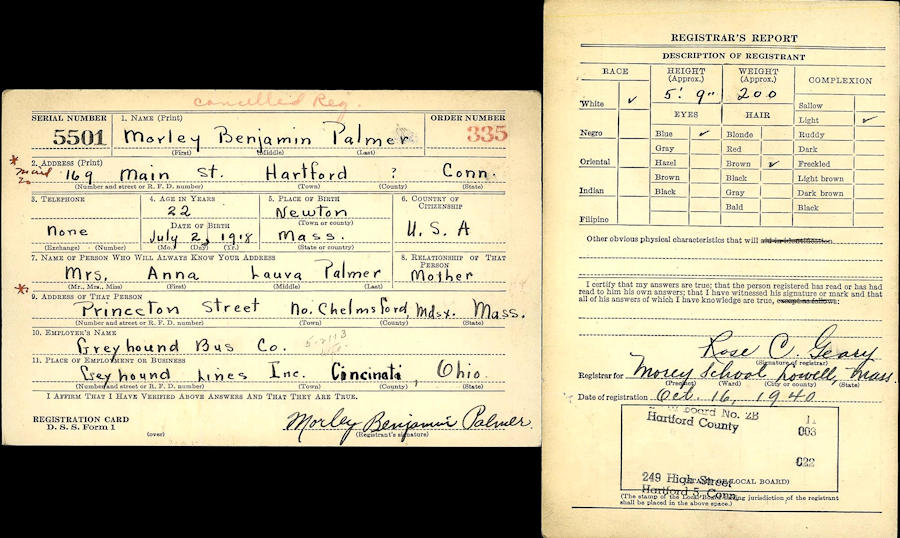 Cancelled Reg.
SERIAL NUMBER 1. NAME (Print) ORDER NUMBER
5501 Morley Benjamin Palmer 335
(First) (Middle) (Last)
* 2. ADDRESS (Print)
169 Main St. Hartford ? Conn.
(Number and street or R. F. D. number) (Town) (County) (State)
3. TELEPHONE 4. AGE IN YEARS 5. PLACE OF BIRTH 6. COUNTRY OF CITIZENSHIP
None 22 Newton U. S. A
DATE OF BIRTH (Town or county)
July 2, 1918 Mass.
(Exchange) (Number) (Mo.) (Day) (Yr.) (State or country)
7. NAME OF PERSON WHO WILL ALWAYS KNOW YOUR ADDRESS 8. RELATIONSHIP OF THAT PERSON
Mrs. Anna Laura Palmer Mother
(Mr., Mrs., Miss) (First) (Middle) (Last)
* 9. ADDRESS OF THAT PERSON
Princeton Street No. Chelmsford, Mdsx. Mass.
(Number and street or R. F. D. number) (Town) (County) (State)
10. EMPLOYER'S NAME
Greyhound Bus Co.
11. PLACE OF EMPLOYMENT OR BUSINESS
Geyhound Lines Inc. Cincinati, Ohio.
(Number and street or R. F. D. number) (Town) (County) (State)
I AFFIRM THAT I HAVE VERIFIED ABOVE ANSWERS AND THAT THEY ARE TRUE.
REGISTRATION CARD
D. S. S. Form 1 Morley Benjamin Palmer.
(over) (Registrant's signature)
REGISTRAR'S REPORT
DESCRIPTION OF REGISTRANT
RACE HEIGHT (Approx.) WEIGHT (Approx.) COMPLEXION
5' 9" 200
White ✓ EYES HAIR Sallow
Light ✓
Negro Blue ✓ Blonde Ruddy
Gray Red Dark
Oriental Hazel Brown ✓ Freckled
Brown Black Light brown
Indian Black Gray Dark brown
Bald Black
Filipino
Other obvious physical characteristics that will aid in identification
I certify that my answers are true; that the person registered has read or has had
read to him his own answers; that I have witnessed his signature or mark and that
all of his answers of which I have knowledge are true, except as follows:
Rose C. Geary
(Signature of registrar)
Registrar for Morey School Lowell, Mass.
(Precinct) (Ward) (City or county) (State)
Date of registration Oct. 16, 1940
Board No. 2B 11
Hartford County 003
022
249 High Street
(STAMP OF LOCAL BOARD)
Hartford 5, Conn.
(The stamp of the Local Board having jurisdiction of the registrant
shall be placed in the above space.)